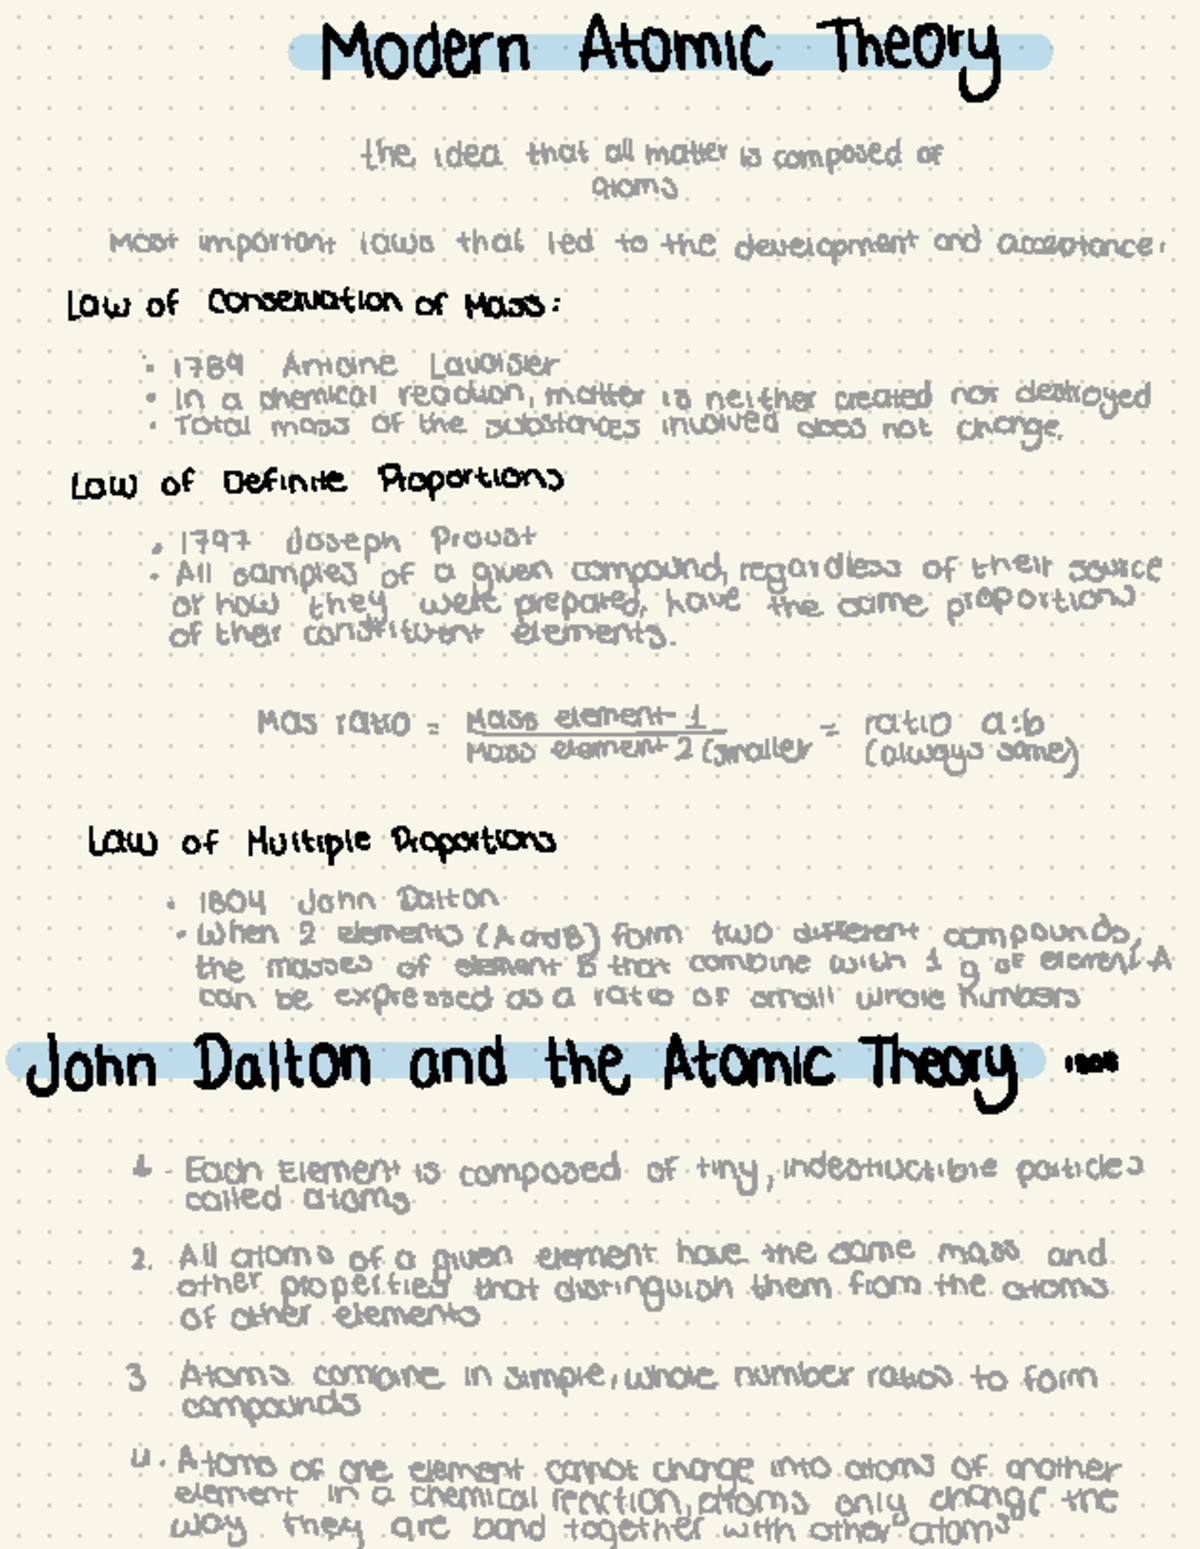 Modern Atomic Theory
the idea that all matter is composed of
atoms
Most important laws that led to the development and acceptance:
Law of Conservation of Mass:
• 1789 Antoine Lavoisier
• In a chemical reaction, matter is neither created nor destroyed
• Total mass of the substances involved does not change.
Law of Definite Proportions
• 1797 Joseph Proust
• All samples of a given compound, regardless of their source
or how they were prepared, have the same proportions
of their constituent elements.
Mas ratio = Mass element 1 = ratio a:b
Mass element 2 (smaller (always same)
Law of Multiple Proportions
• 1804 John Dalton
• When 2 elements (A and B) form two different compounds,
the masses of element B that combine with 1 g of element A
can be expressed as a ratio of small whole numbers
John Dalton and the Atomic Theory
1. Each Element is composed of tiny, indestructible particles
called atoms
2. All atoms of a given element have the same mass and
other properties that distinguish them from the atoms
of other elements
3 Atoms combine in simple, whole number ratios to form
compounds
4. Atoms of one element cannot change into atoms of another
element in a chemical reaction, atoms only change the
way they are bond together with other atoms